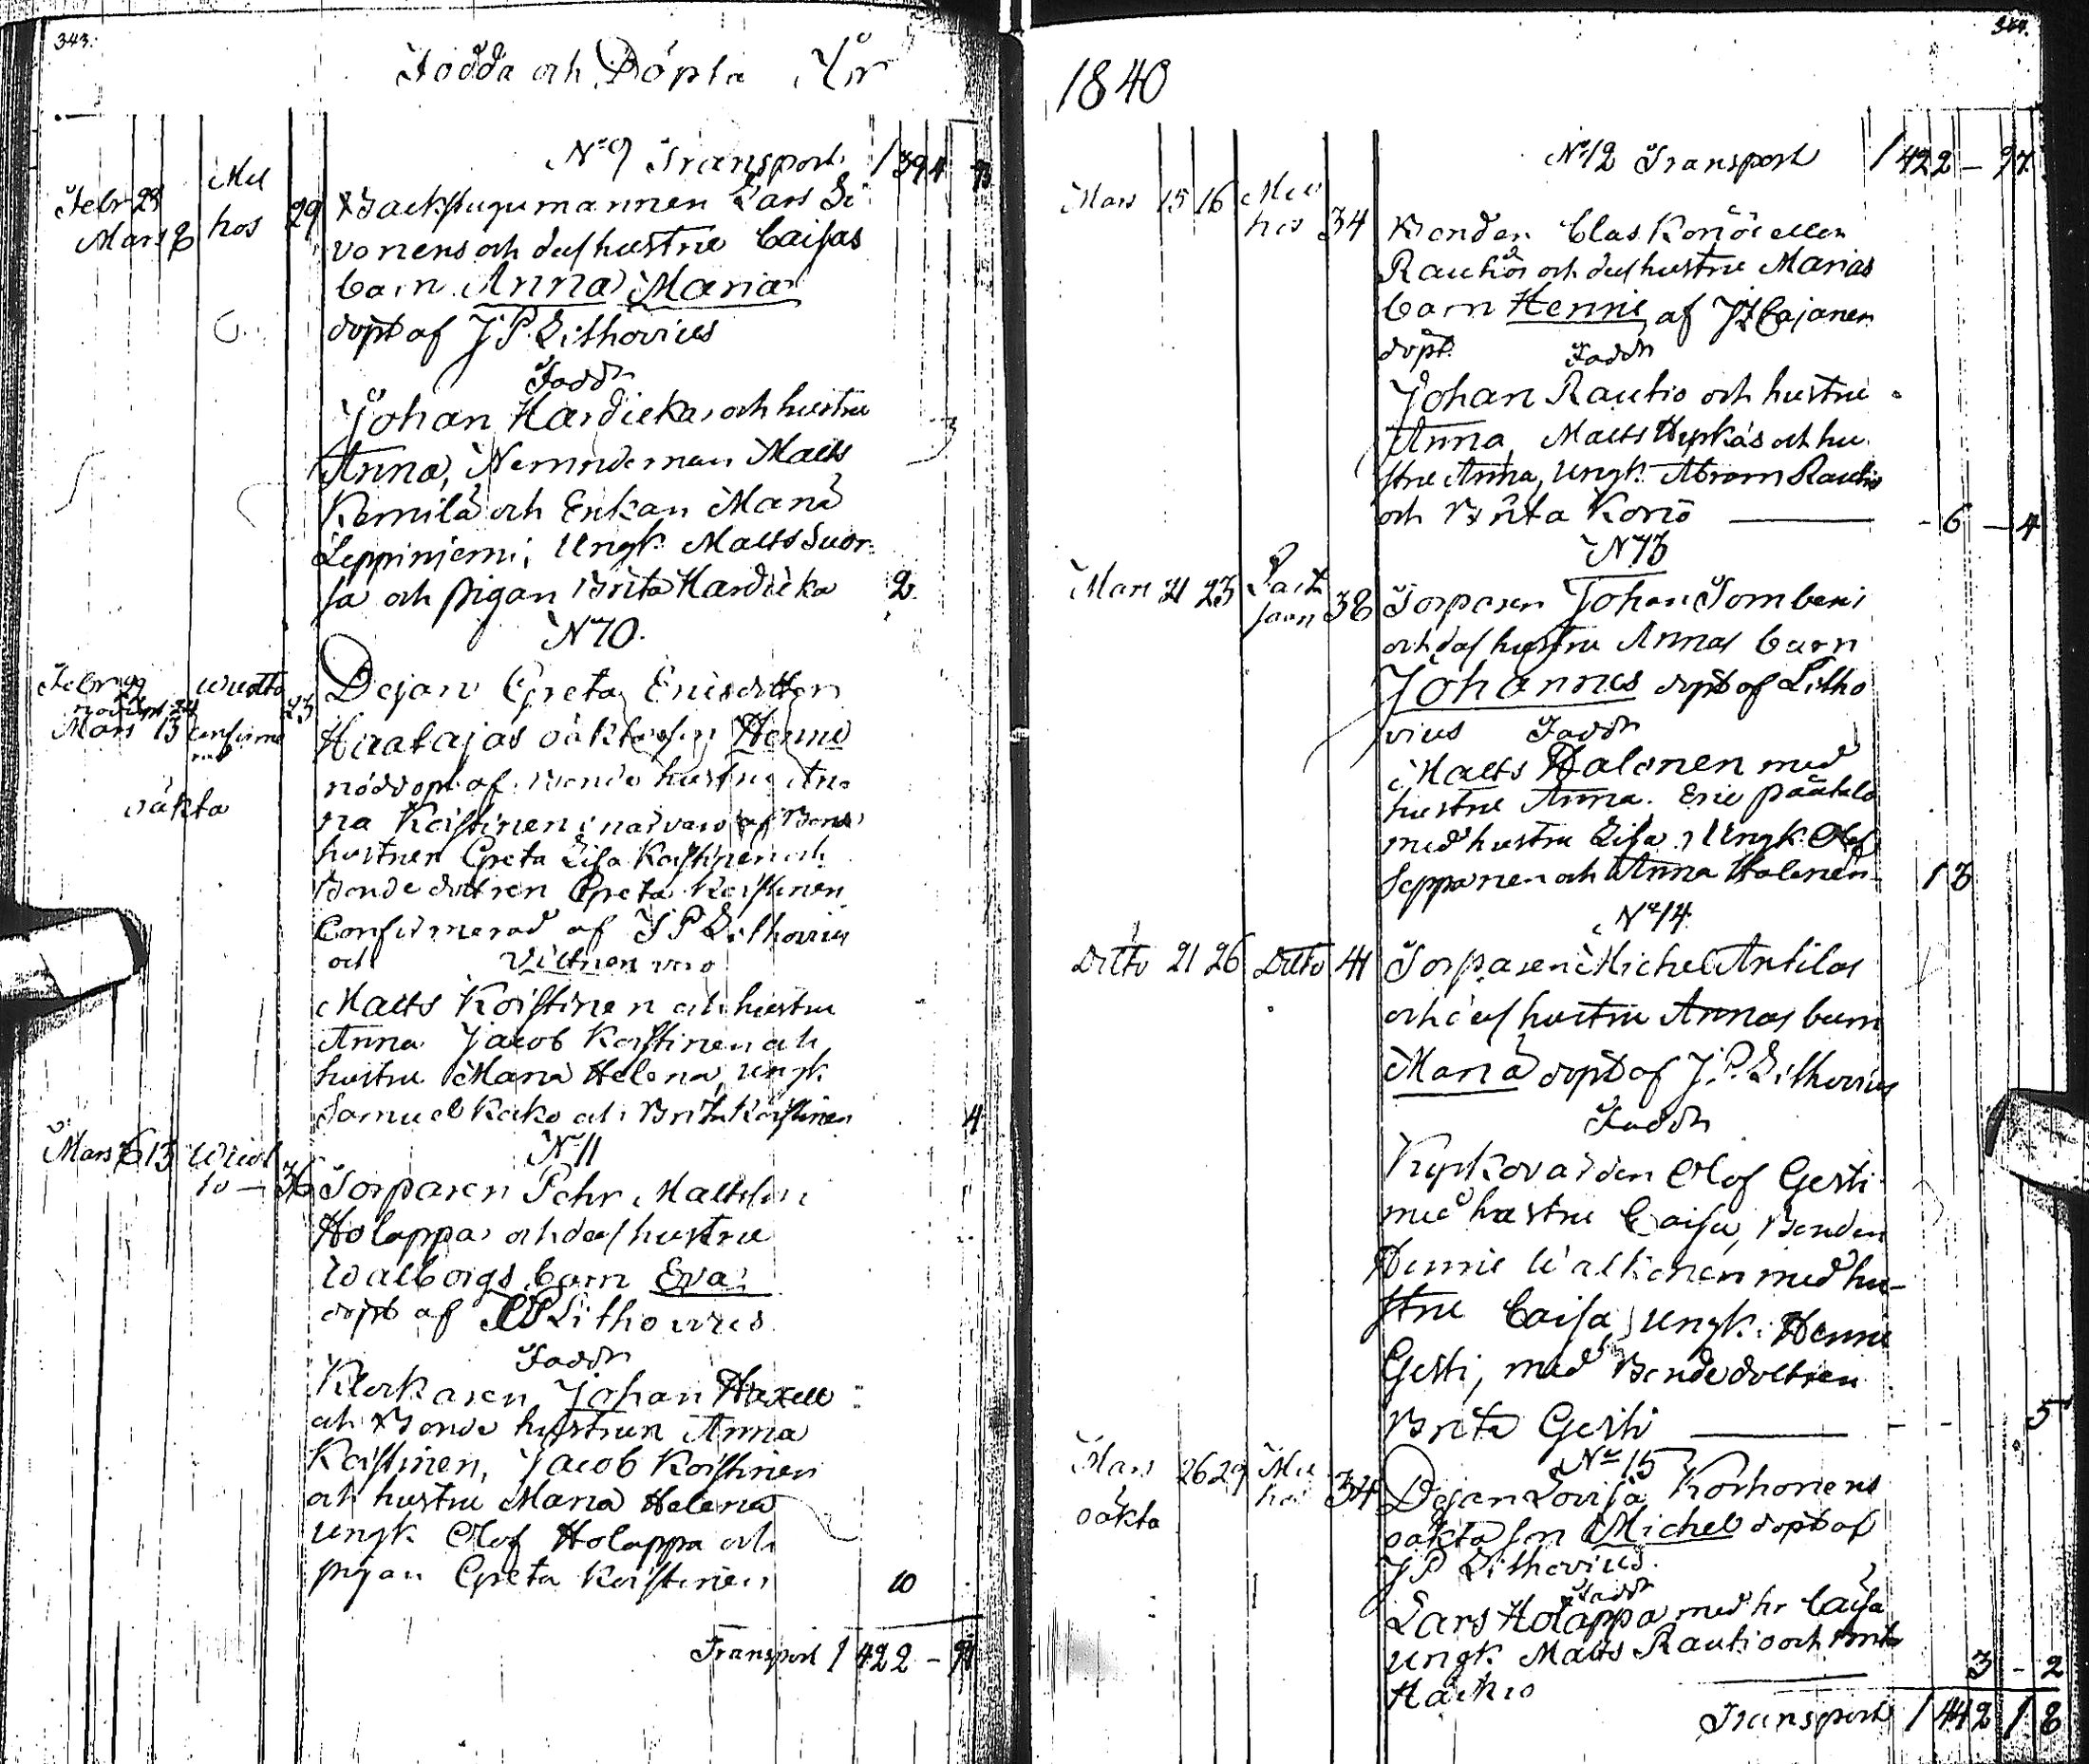 343.
Födda och Döpta År
No 9 Transport 1 394
Febr 28
Mars 8
Mu
hos
29
Backstugumannen Lars
vonens och dess hustru Caisas
barn Anna Maria
döpt af J.P. Lithovius
Faddr
Johan Hardicka och hustru
Anna, Nemndeman Matts
Kemilä och Enkan Maria
Leppiniemi, Ungk. Matts Suor-
sa och pigan Brita Hardicka 2.
N 10.
Febr 22
Mars 13
confirme
rad
23
oäkta
Dejan Greta Ericsdotter
Haatajas oäkta son Henric
nöddöpt af Bonde hustru An-
na Koistinen i närvaro af Bonde
hustrun Greta Lisa Koistinen och
Bonde dottren Greta Koistinen
Confirmerad af J P Lithovius
och Vittnen voro
Matts Koistinen och hustru
Anna Jacob Koistinen och
hustru Maria Helena, Ungk.
Samuel och Brita Koistinen 4
N 11
Mars 6 13
36
Torparen Pehr Mattsson
Holappa och dess hustru
Walborgs barn Eva
döpt af JP Lithovius
Faddr
Klockaren Johan Haxell
och Bonde hustrun Anna
Koistinen, Jacob Koistinen
och hustru Maria Helena
Ungk Olof Holappa och
pigan Greta Koistinen 10
Transport 1 422 - 91
364.
1840
No 12 Transport 1 422 - 97
Mars 15 16 Mu
hos 34
Bonden Clas Koriö eller
Rautios och dess hustru Marias
barn Henric, af JF Cajanen
döpt. Faddr
Johan Rautio och hustru
Anna, Matts Hyrkäs och hu
stru Anna, Ungk. Abram Rautio
och Brita Koriö - 6 - 4
N 13
Mars 21 23 38
Torparen Johan Tomberi
och dess hustru Annas barn
Johannes döpt af Litho
vius Faddr
Matts Halonen med
hustru Anna. Eric Päätalo
med hustru Lisa, Ungk. Olof
Seppänen och Anna Halonen 13
No 14
Ditto 21 26 Ditto 41
Torparen Michel Anttilas
och dess hustru Annas barn
Maria döpt af J.P. Lithovius
Faddr
Kyrkovärden Olof Gesti
med hustru Caisa, Bonden
Henric med hu-
stru Caisa, Ungk. Henric
Gesti, med Bondedottren
Brita Gesti - - 5
No 15
Mars 26 29 Mu
hos 34
oäkta
Dejan Lovisa Korhonens
oäkta son Michel döpt af
J P Lithovius.
Faddr
Lars Holappa med hr Caisa
Ungk. Matts Rautio och Brita
3 - 2
Transport 1 442 1 8